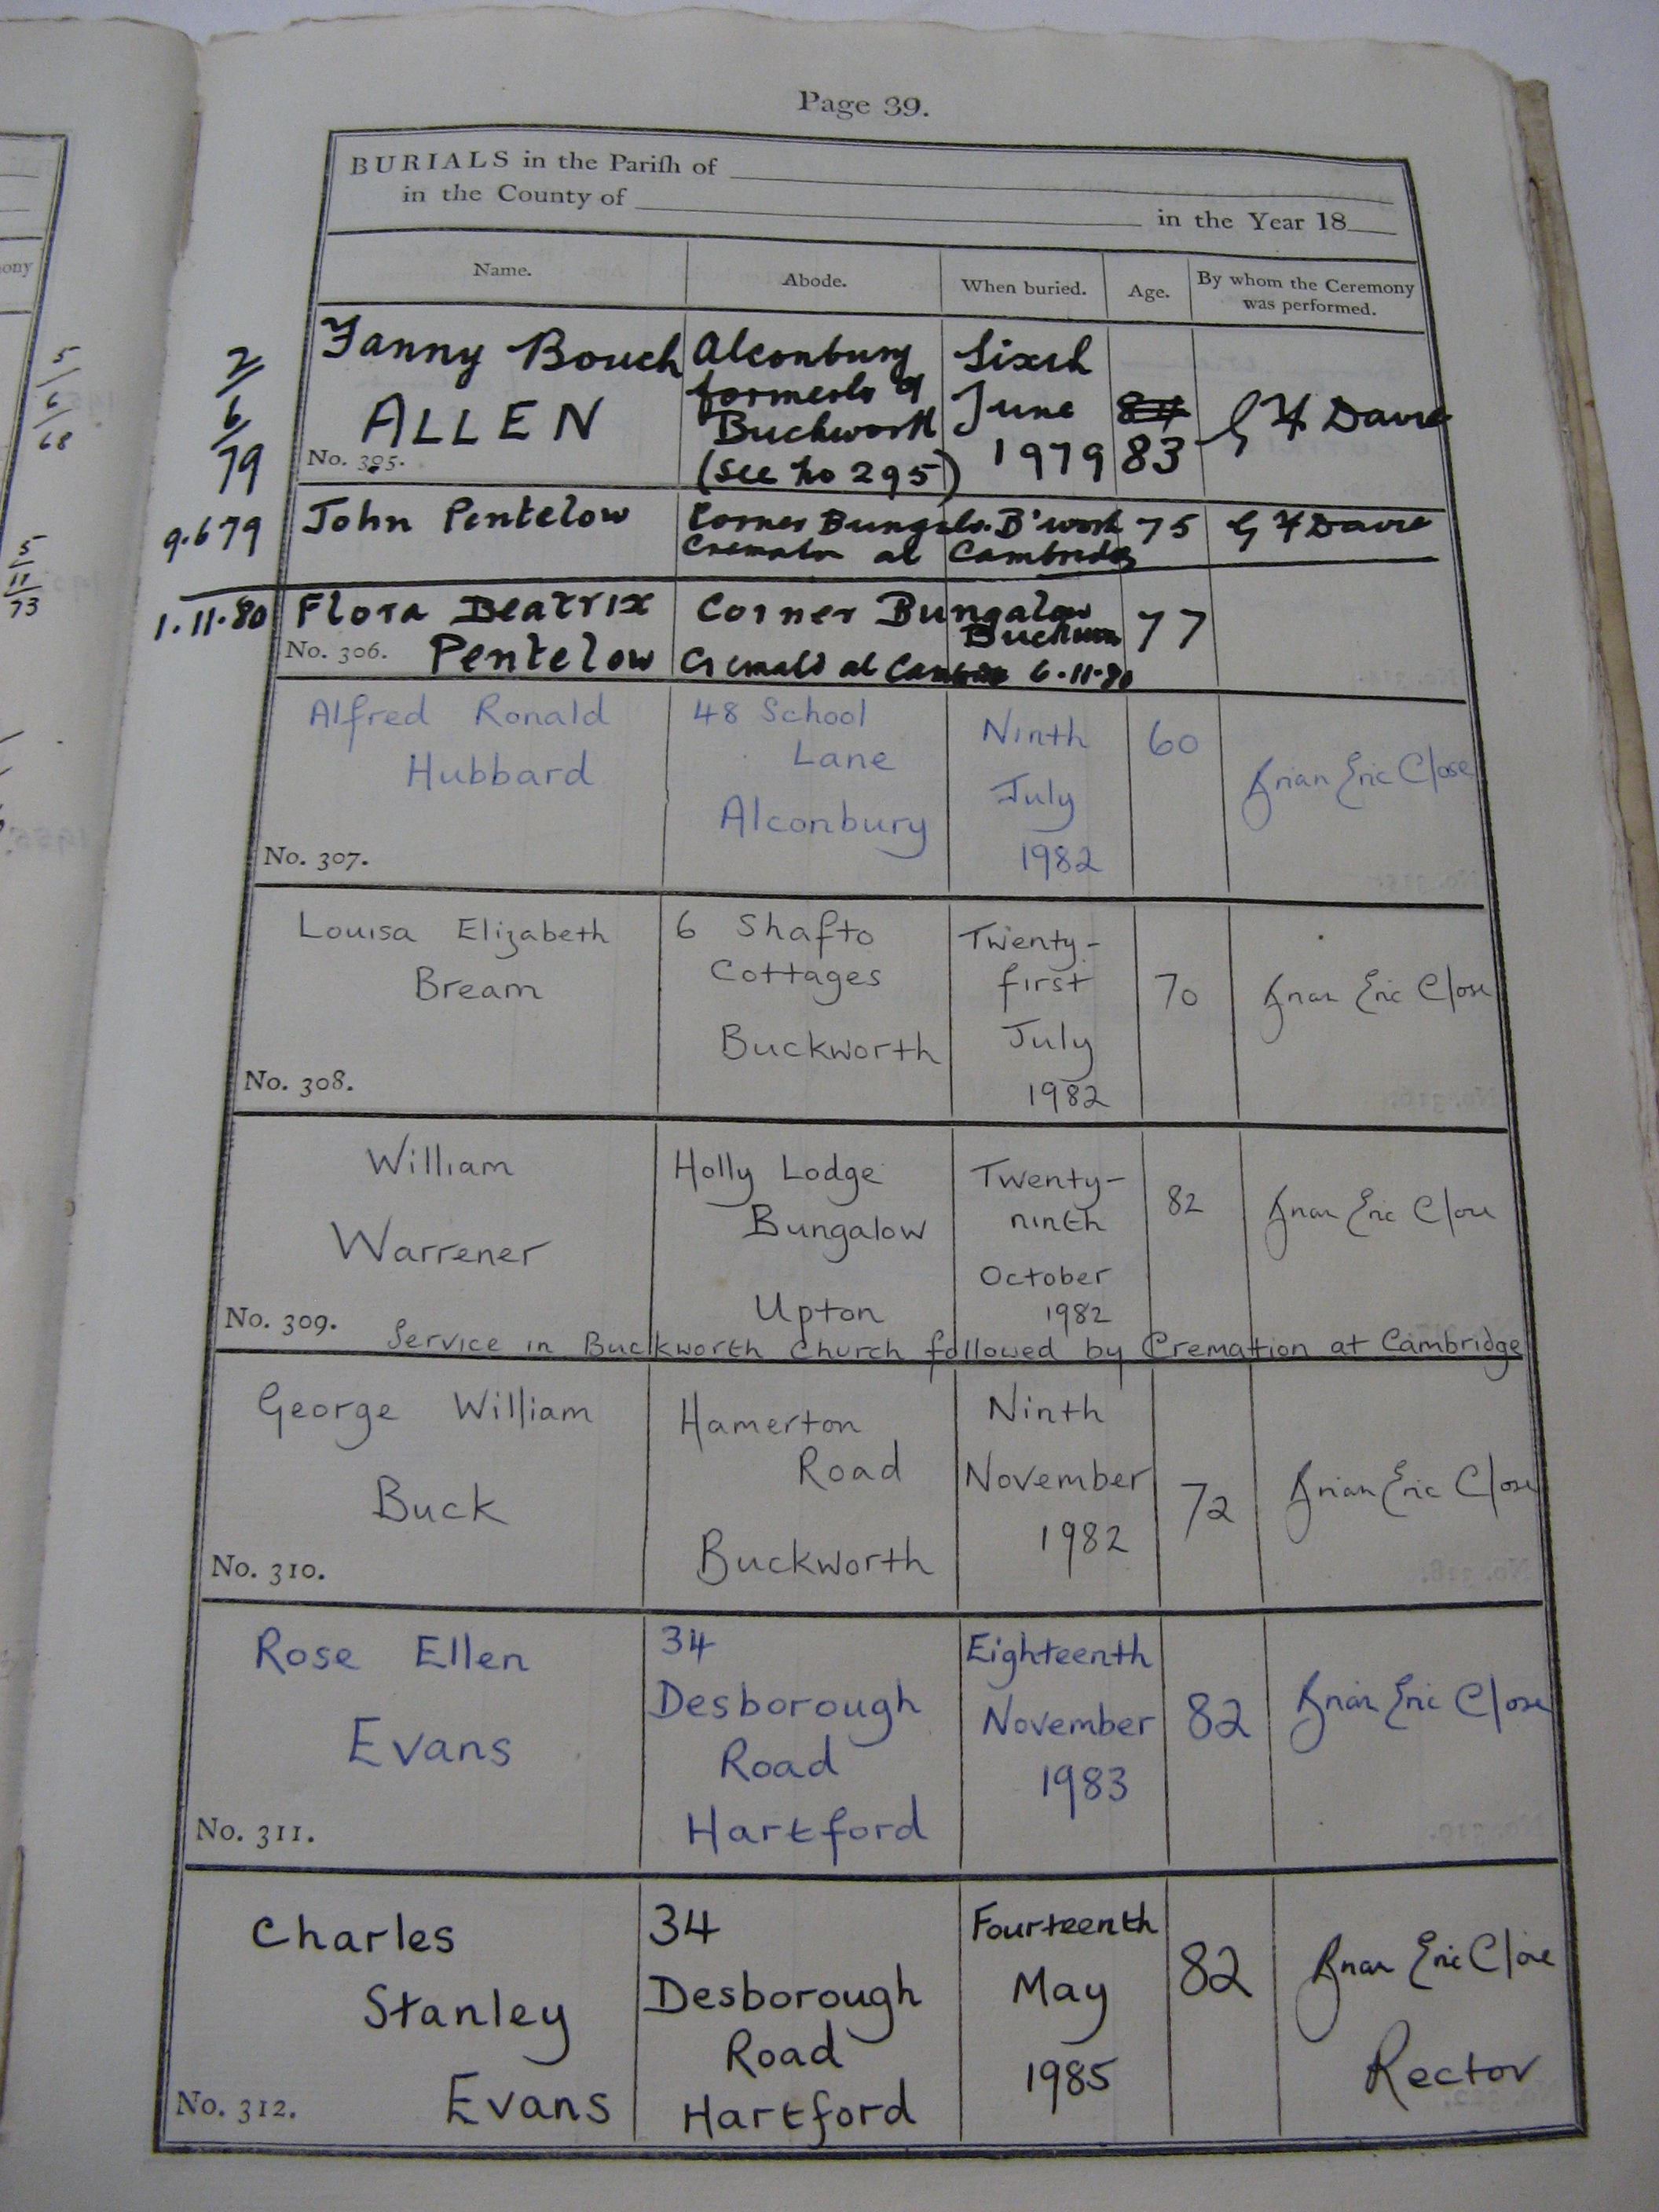 Page 39.
BURIALS in the Pariſh of
in the County of in the Year 18
Name. Abode. When buried. Age. By whom the Ceremony was performed.
2/6/79
Fanny Bouch
ALLEN
No. 305.
Alconbury
formerly of
Buckworth
(See No 295)
Sixth
June
1979
84
83
G H Davis
9.679
John Pentelow
Corner Bungalo. B'worth
Cremation at Cambridge
75
G H Davis
1.11.80
Flora Beatrix
No. 306. Pentelow
Corner Bungalow
Cremated at 6.11.80
77
Alfred Ronald
Hubbard
No. 307.
48 School
Lane
Alconbury
Ninth
July
1982
60
Brian Eric Close
Louisa Elizabeth
Bream
No. 308.
6 Shafto
Cottages
Buckworth
Twenty-
first
July
1982
70
Brian Eric Close
William
Warrener
No. 309.
Holly Lodge
Bungalow
Upton
Twenty-
ninth
October
1982
82
Brian Eric Close
Service in Buckworth Church followed by Cremation at Cambridge
George William
Buck
No. 310.
Hamerton
Road
Buckworth
Ninth
November
1982
72
Brian Eric Close
Rose Ellen
Evans
No. 311.
34
Desborough
Road
Hartford
Eighteenth
November
1983
82
Brian Eric Close
Charles
Stanley
Evans
No. 312.
34
Desborough
Road
Hartford
Fourteenth
May
1985
82
Brian Eric Close
Rector